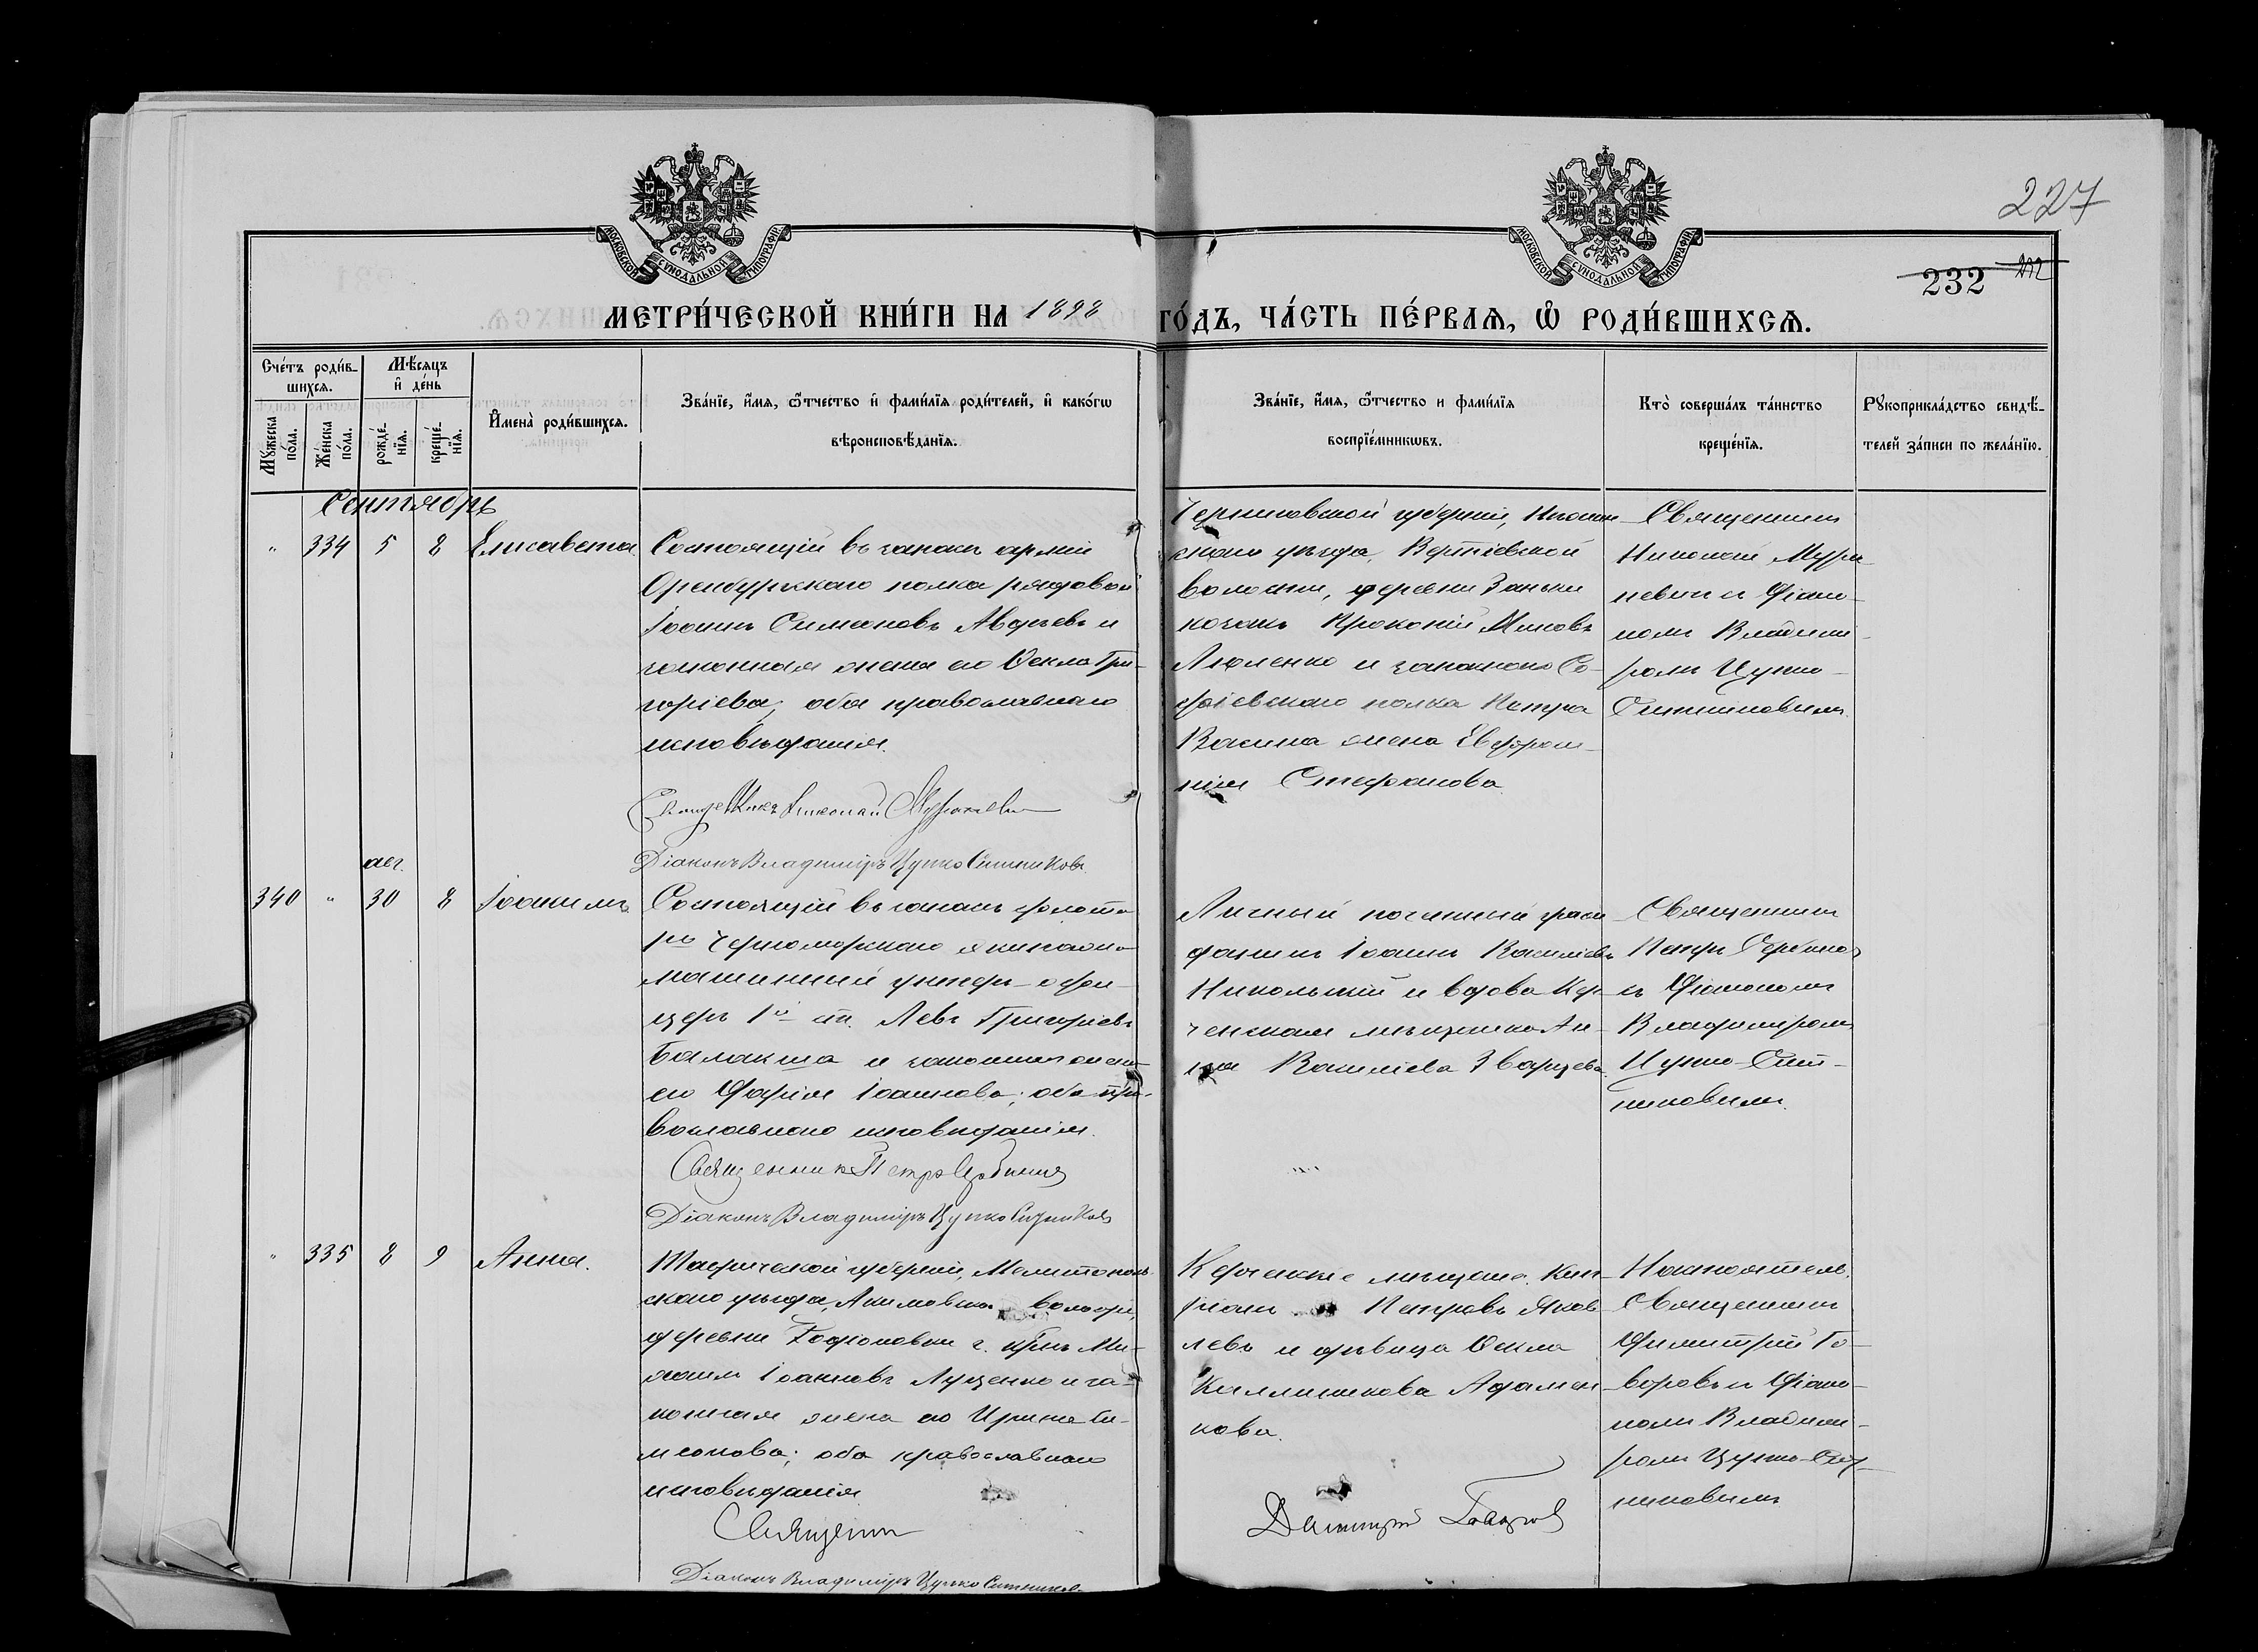 227
МОСКОВСКОЙ СУНОДАЛЬНОЙ ТИПОГРАФІИ
МОСКОВСКОЙ СУНОДАЛЬНОЙ ТИПОГРАФІИ
232
МЕТРИ́ЧЕСКОЙ КНИ́ГИ НА 1898 ГО́ДЪ, ЧА́СТЬ ПЕ́РВАѦ, Ѽ РОДИ́ВШИХСѦ.
Сче́тъ роди́в-
шихсѧ.
Мꙋ́жеска по́ла.
Же́нска по́ла.
Мѣ́сяцъ
и҆ де́нь
рожде́-нїѧ.
креще́-нїѧ.
И҆мена̀ роди́вшихсѧ.
Зва́нїе, и҆́мя, ѻ҆́тчество и҆ фами́лїѧ роди́телей, и҆ како́гѡ
вѣроисповѣ́данїѧ.
Зва́нїе, и҆́мя, ѻ҆́тчество и фами́лїѧ
воспрїе́мникѡвъ.
Кто̀ соверша́лъ та́инство
креще́нїѧ.
Рꙋкоприкла́дство свидѣ́-
телей за́писи по жела́нїю.
Сентябрь
" 334 5 8 Елисавета
Состоящій въ запасѣ арміи
Оренбургскаго полка рядовой
Іоаннъ Симеоновъ Авдѣевъ и
законная жена его Ѳекла Гри-
горіева; оба православнаго
исповѣданія.
Священникъ Николай
Діаконъ Владиміръ Цупко Ситниковъ
Черниговской губерніи, Нѣжин-
скаго уѣзда, Вертіевской
волости, деревни Заньки
козакъ Прокопій
и запаснаго Со-
фіевскаго полка Петра
жена Евфроси-
нія Стефанова
Священникъ
Николай
и Діако-
номъ Владими-
ромъ Цупко-
Ситниковымъ.
авг.
340 " 30 8 Іоакимъ
Состоящій въ запасѣ флота
1го Черноморскаго экипажа
машинный унтеръ-офи-
церъ 1й ст. Левъ Григоріевъ
Балакша и законная жена
его Дарія Іоаннова; оба пра-
вославнаго исповѣданія.
Священникъ Петръ Сербиновъ
Діаконъ Владиміръ Цупко Ситниковъ
Личный почетный граж-
данинъ Іоаннъ Василіевъ
Никольскій и вдова Кер-
ченская мѣщанка Ан-
на Василіева Зварцева.
Священникъ
Петръ Сербиновъ
съ Діакономъ
Владиміромъ
Цупко-Сит-
никовымъ.
" 335 8 9 Анна.
Таврической губерніи, Мелитополь-
скаго уѣзда, Акимовской волости,
деревни г. крес. Ми-
хаилъ Іоанновъ Луценко и за-
конная жена его Ирина Си-
меонова; оба православнаго
исповѣданія
Священникъ Димитрій Говоровъ
Діаконъ Владиміръ Цупко Ситниковъ
Керченскіе мѣщане: Кип-
ріанъ Петровъ Яков-
левъ и дѣвица Ѳекла
Каллиникова Адамен-
кова.
Настоятель
Священникъ
Димитрій Го-
воровъ и Діако-
номъ Владими-
ромъ Цупко-Сит-
никовымъ